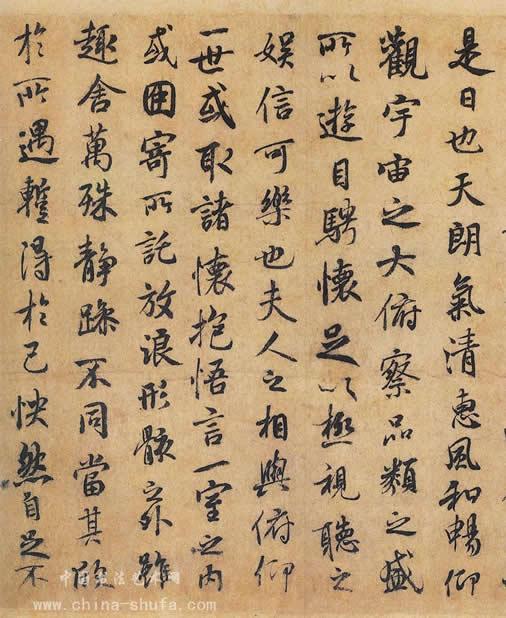 是日也天朗氣清惠風和暢仰
觀宇宙之大俯察品類之盛
所以遊目騁懷足以極視聽之
娛信可樂也夫人之相與俯仰
一世或取諸懷抱悟言一室之内
或因寄所託放浪形骸之外雖
趣舍萬殊静躁不同當其欣
於所遇暫得於己怏然自足不
中国书法艺术网
www.china-shufa.com